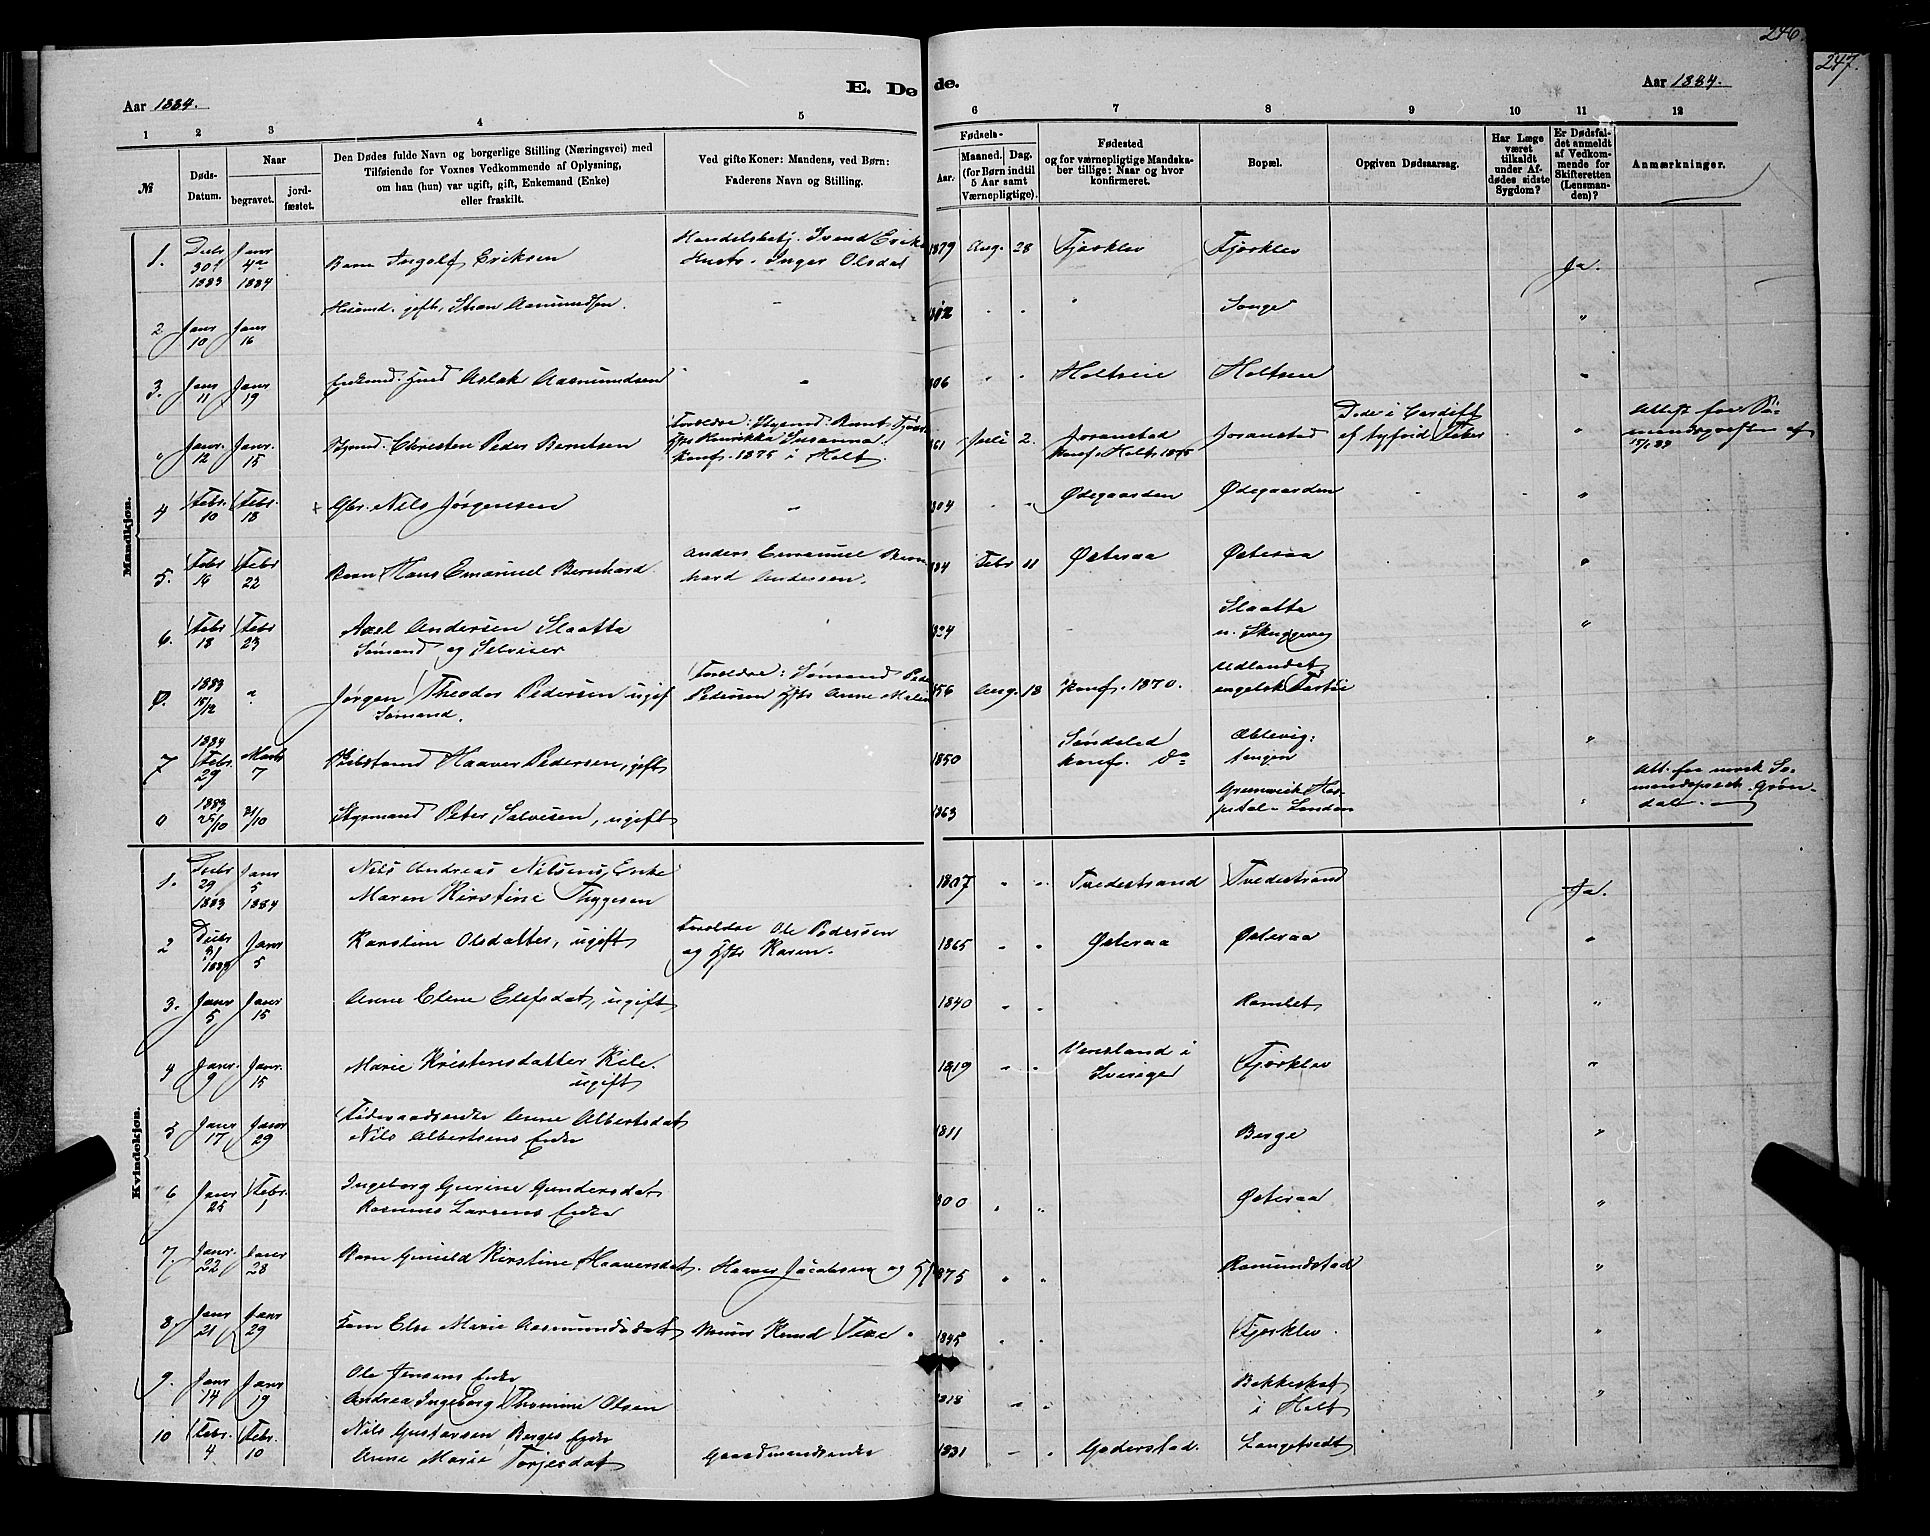 246.
247.
Aar 1884.
E. Døde.
Aar 1884.
1 2 3 4 5 6 7 8 9 10 11 12
№
Døds-Datum.
Naar
begravet.
jordfæstet.
Den Dødes fulde Navn og borgerlige Stilling (Næringsvei) med
Tilføiende for Voxnes Vedkommende af Oplysning,
om han (hun) var ugift, gift, Enkemand (Enke)
eller fraskilt.
Ved gifte Koner: Mandens, ved Børn:
Faderens Navn og Stilling.
Fødsels-
Aar.
Maaned. Dag.
(for Børn indtil
5 Aar samt
Værnepligtige).
Fødested
og for værnepligtige Mandskaber tillige: Naar og hvor
konfirmeret.
Bopæl.
Opgiven Dødsaarsag.
Har Læge
været
tilkaldt
under Afdødes sidste
Sygdom?
Er Dødsfaldet anmeldt
af Vedkommende for
Skifteretten
(Lensmanden)?
Anmærkninger.
Mandkjøn.
1. Decbr 30t 1883 Janr 4de 1884 Barn Ingolf Eriksen Handelsbetj. Svend Eriks Hustr. Inger Olsdat 1879 Aug. 28 Fjærklev Fjærklev Ja.
2 Janr 10 Janr 16 gift, Aasmundsen. " Songe "
3. Janr 11 Janr 19 Aslak Aasmundsen " 806 Holtveie Holtveie "
" Janr. 12 Janr. 15 Christen Peder Berntsen Forældre: Bernt Susanna. Konf. 1875 i Holt. 61 Juli 2. Joranstad Konf. Holt 1875 Joranstad Døde i Cardiff af tyfoid Feber " Attest fra
4 Febr. 10 Febr. 18 Gbr. Nils Jørgensen " 804 Ødegaarden Ødegaarden "
5. Febr 16 Febr 22 Barn Hans Emanuel Bernhard. Anders Emanuel Bernhard Andersen. 84 Febr 11 Østeraa Østeraa "
6. Febr 18 Febr 23 Axel Andersen Slaatta Sømand og Selveier 824 Slaatta u. Skuggevig "
Ø. 1883 15/12 " Jørgen Theodor Pedersen ugif Sømand. Forældre: Sømand Peder Pedersen Hstr Anne Malen 856 Aug. 18 Konf. 1870. Udlandet engelsk Fartøi
7 1884 Febr. 29 Marts 7 Haaver Pedersen, gift 1850 Søndeled konf. do Æblevigtangen "
0 1883 25/10 31/10 Styrmand Peter Salvesen, ugift 1863 Greenwich Hospital - London " Att. fra norsk Sømandspræst Grøndal.
Kvindekjøn.
1. Decbr 29 1883 Janr 5 1884 Nils Andreas Nilsens Enke Maren Kirstine Thygesen 1807 Tvedestrand Tvedestrand Ja.
2 Decbr 31 1883 Janr 5 Karstine Olsdatter, ugift Forældre Ole Pedersen og Hstr Karen. 1865 Østeraa Østeraa "
3. Janr 5 Janr 15 Anne Elene Elefsdat, ugift 1840 Ramlet "
4 Janr. 9 Janr. 15 Marie Kristensdatter Kile. ugift 1819 Vermland i Sverige Fjærklev "
5 Janr 17 Janr 29 Føderaadsenke Anne Albertsdat Nils Albertsens Enke 1811 Berge "
6 Janr 25 Febr. 1 Ingeborg Gurine Gundersdat Rasmus Larsens Enke 800 Østeraa "
7. Janr. 22 Janr 28 Barn Gunild Kirstine Haaversdat. Haaver Jacobsen og Hstr 875 Ramundstad "
8. Janr 21 Janr 29 Else Marie Aasmundsdat Knud 1845 Fjærklev. "
9. Janr 14 Janr 19 Ole Jensens Enke Andrea Ingeborg Thomine Olsen 1818 Bakkeskot i Holt "
10 Febr. 4 Febr. 10 Nils Gustavsen Berges Enke Anne Marie Torjesdat Gaardmandsenke 1831 Goderstad. Langtvedt